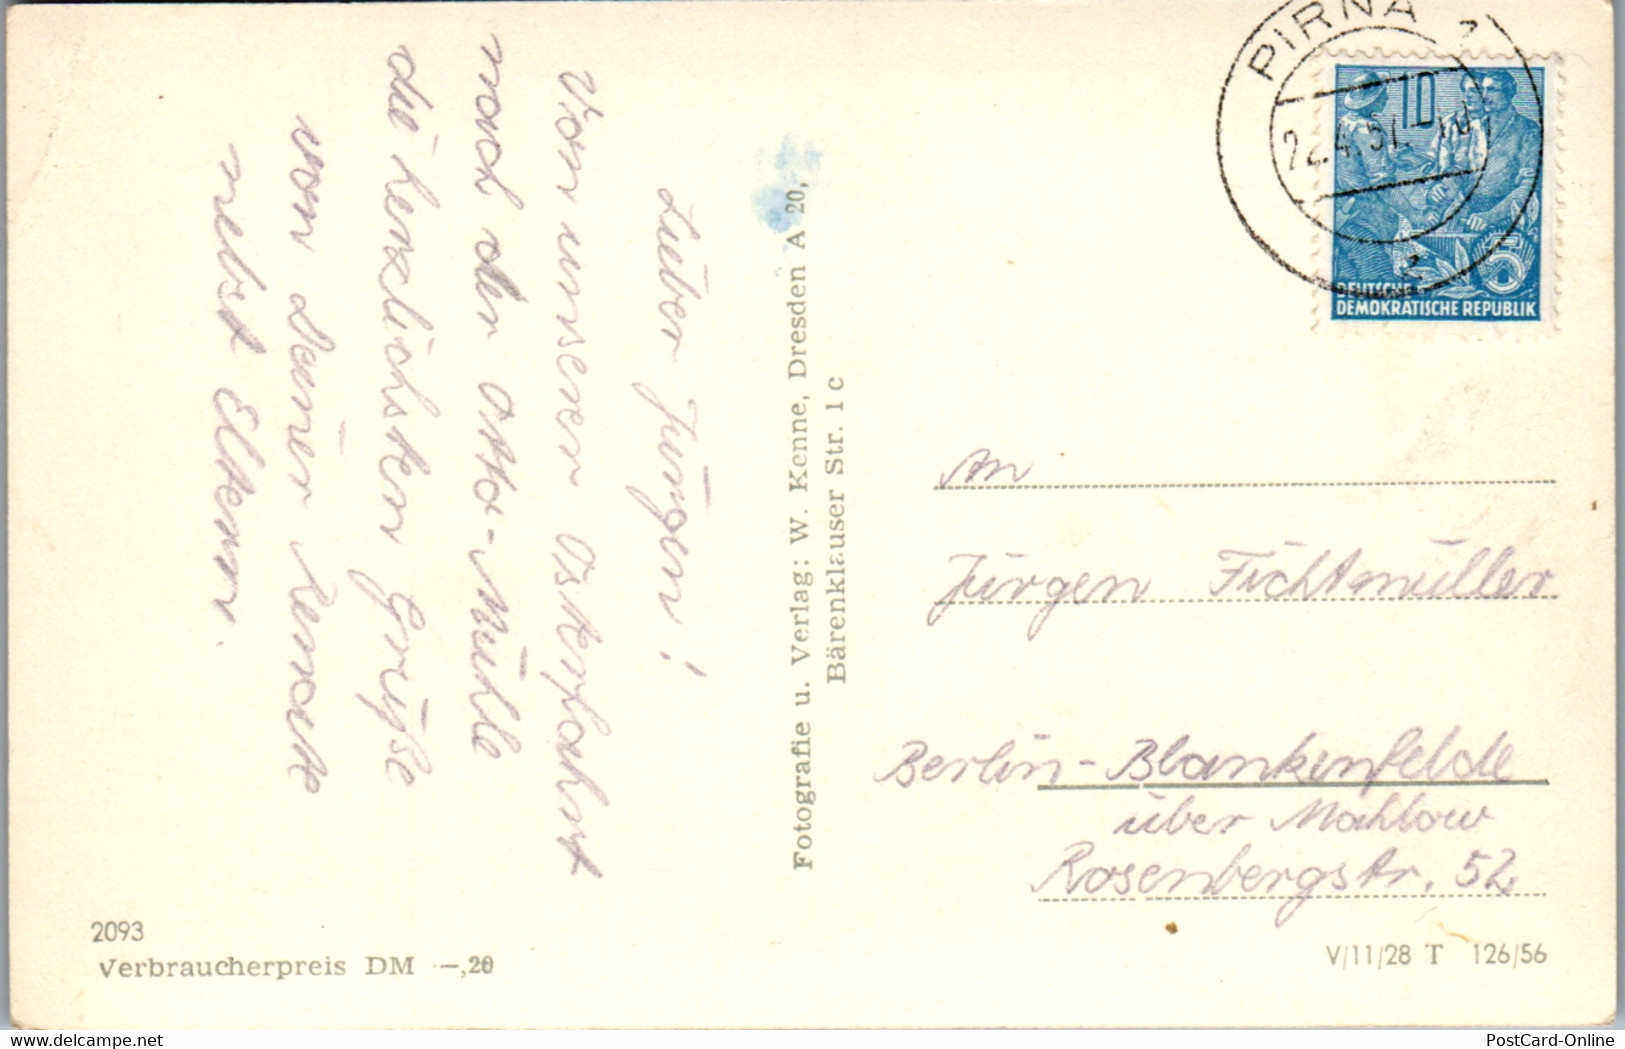 Lieber Jürgen!
Von unserer Osterfahrt
nach der Otto-Mühle
die herzlichsten Grüße
von Deiner Renate
nebst Eltern.
Fotografie u. Verlag: W. Kenne, Dresden A 20,
Bärenklauser Str. 1 c
PIRNA
22.4.57.
10
5
DEUTSCHE
DEMOKRATISCHE REPUBLIK
An
Jürgen Fichtmüller
Berlin-Blankenfelde
über Mahlow
Rosenbergstr. 52
2093
Verbraucherpreis DM –,20
V/11/28 T 126/56
delcampe.net
PostCard-Online